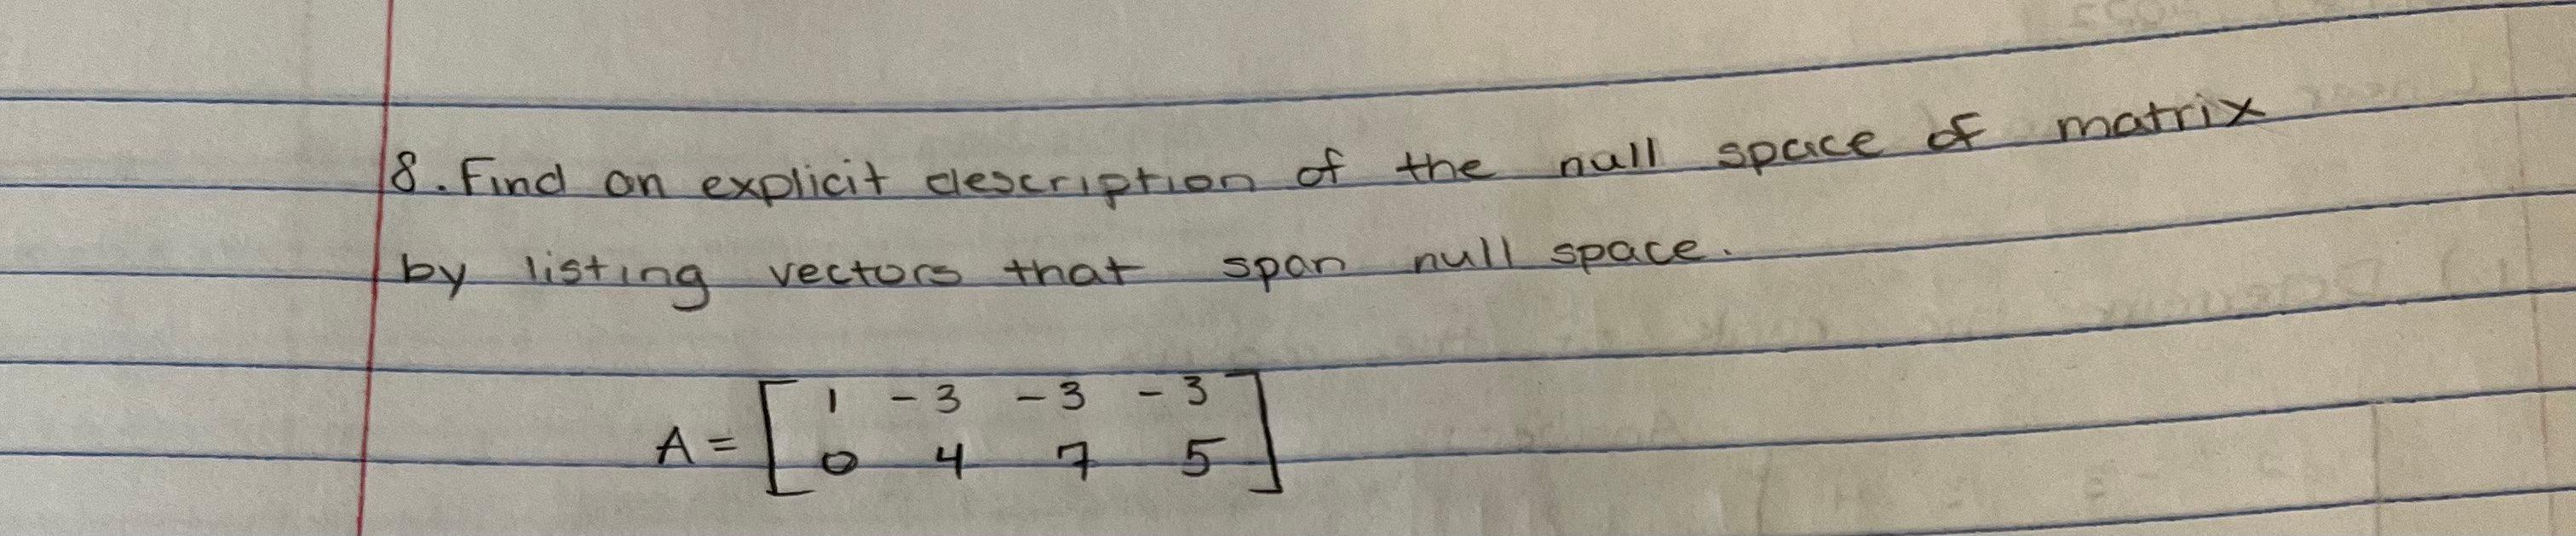 8. Find an explicit description of the null space of matrix
by listing vectors that span null space.
A = [ 1 -3 -3 -3
0 4 7 5 ]